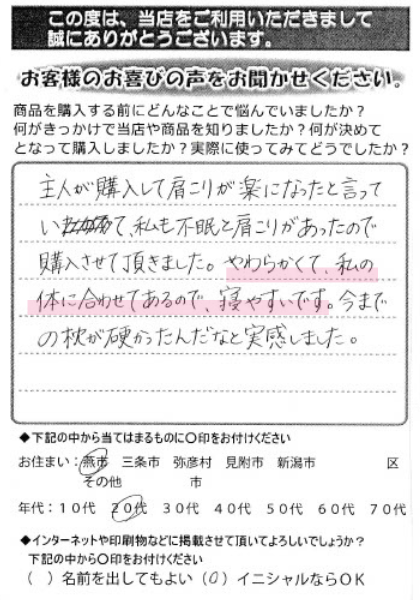 この度は、当店をご利用いただきまして
誠にありがとうございます。
お客様のお喜びの声をお聞かせください。
商品を購入する前にどんなことで悩んでいましたか?
何がきっかけで当店や商品を知りましたか?何が決めて
となって購入しましたか?実際に使ってみてどうでしたか?
主人が購入して肩こりが楽になったと言って
いて、私も不眠と肩こりがあったので
購入させて頂きました。やわらかくて、私の
体に合わせてあるので、寝やすいです。今まで
の枕が硬かったんだなと実感しました。
◆下記の中から当てはまるものに〇印をお付けください
お住まい:燕市 三条市 弥彦村 見附市 新潟市 区
その他 市
年代:10代 20代 30代 40代 50代 60代 70代
◆インターネットや印刷物などに掲載させて頂いてよろしいでしょうか?
下記の中から〇印をお付けください
( )名前を出してもよい (〇)イニシャルならOK